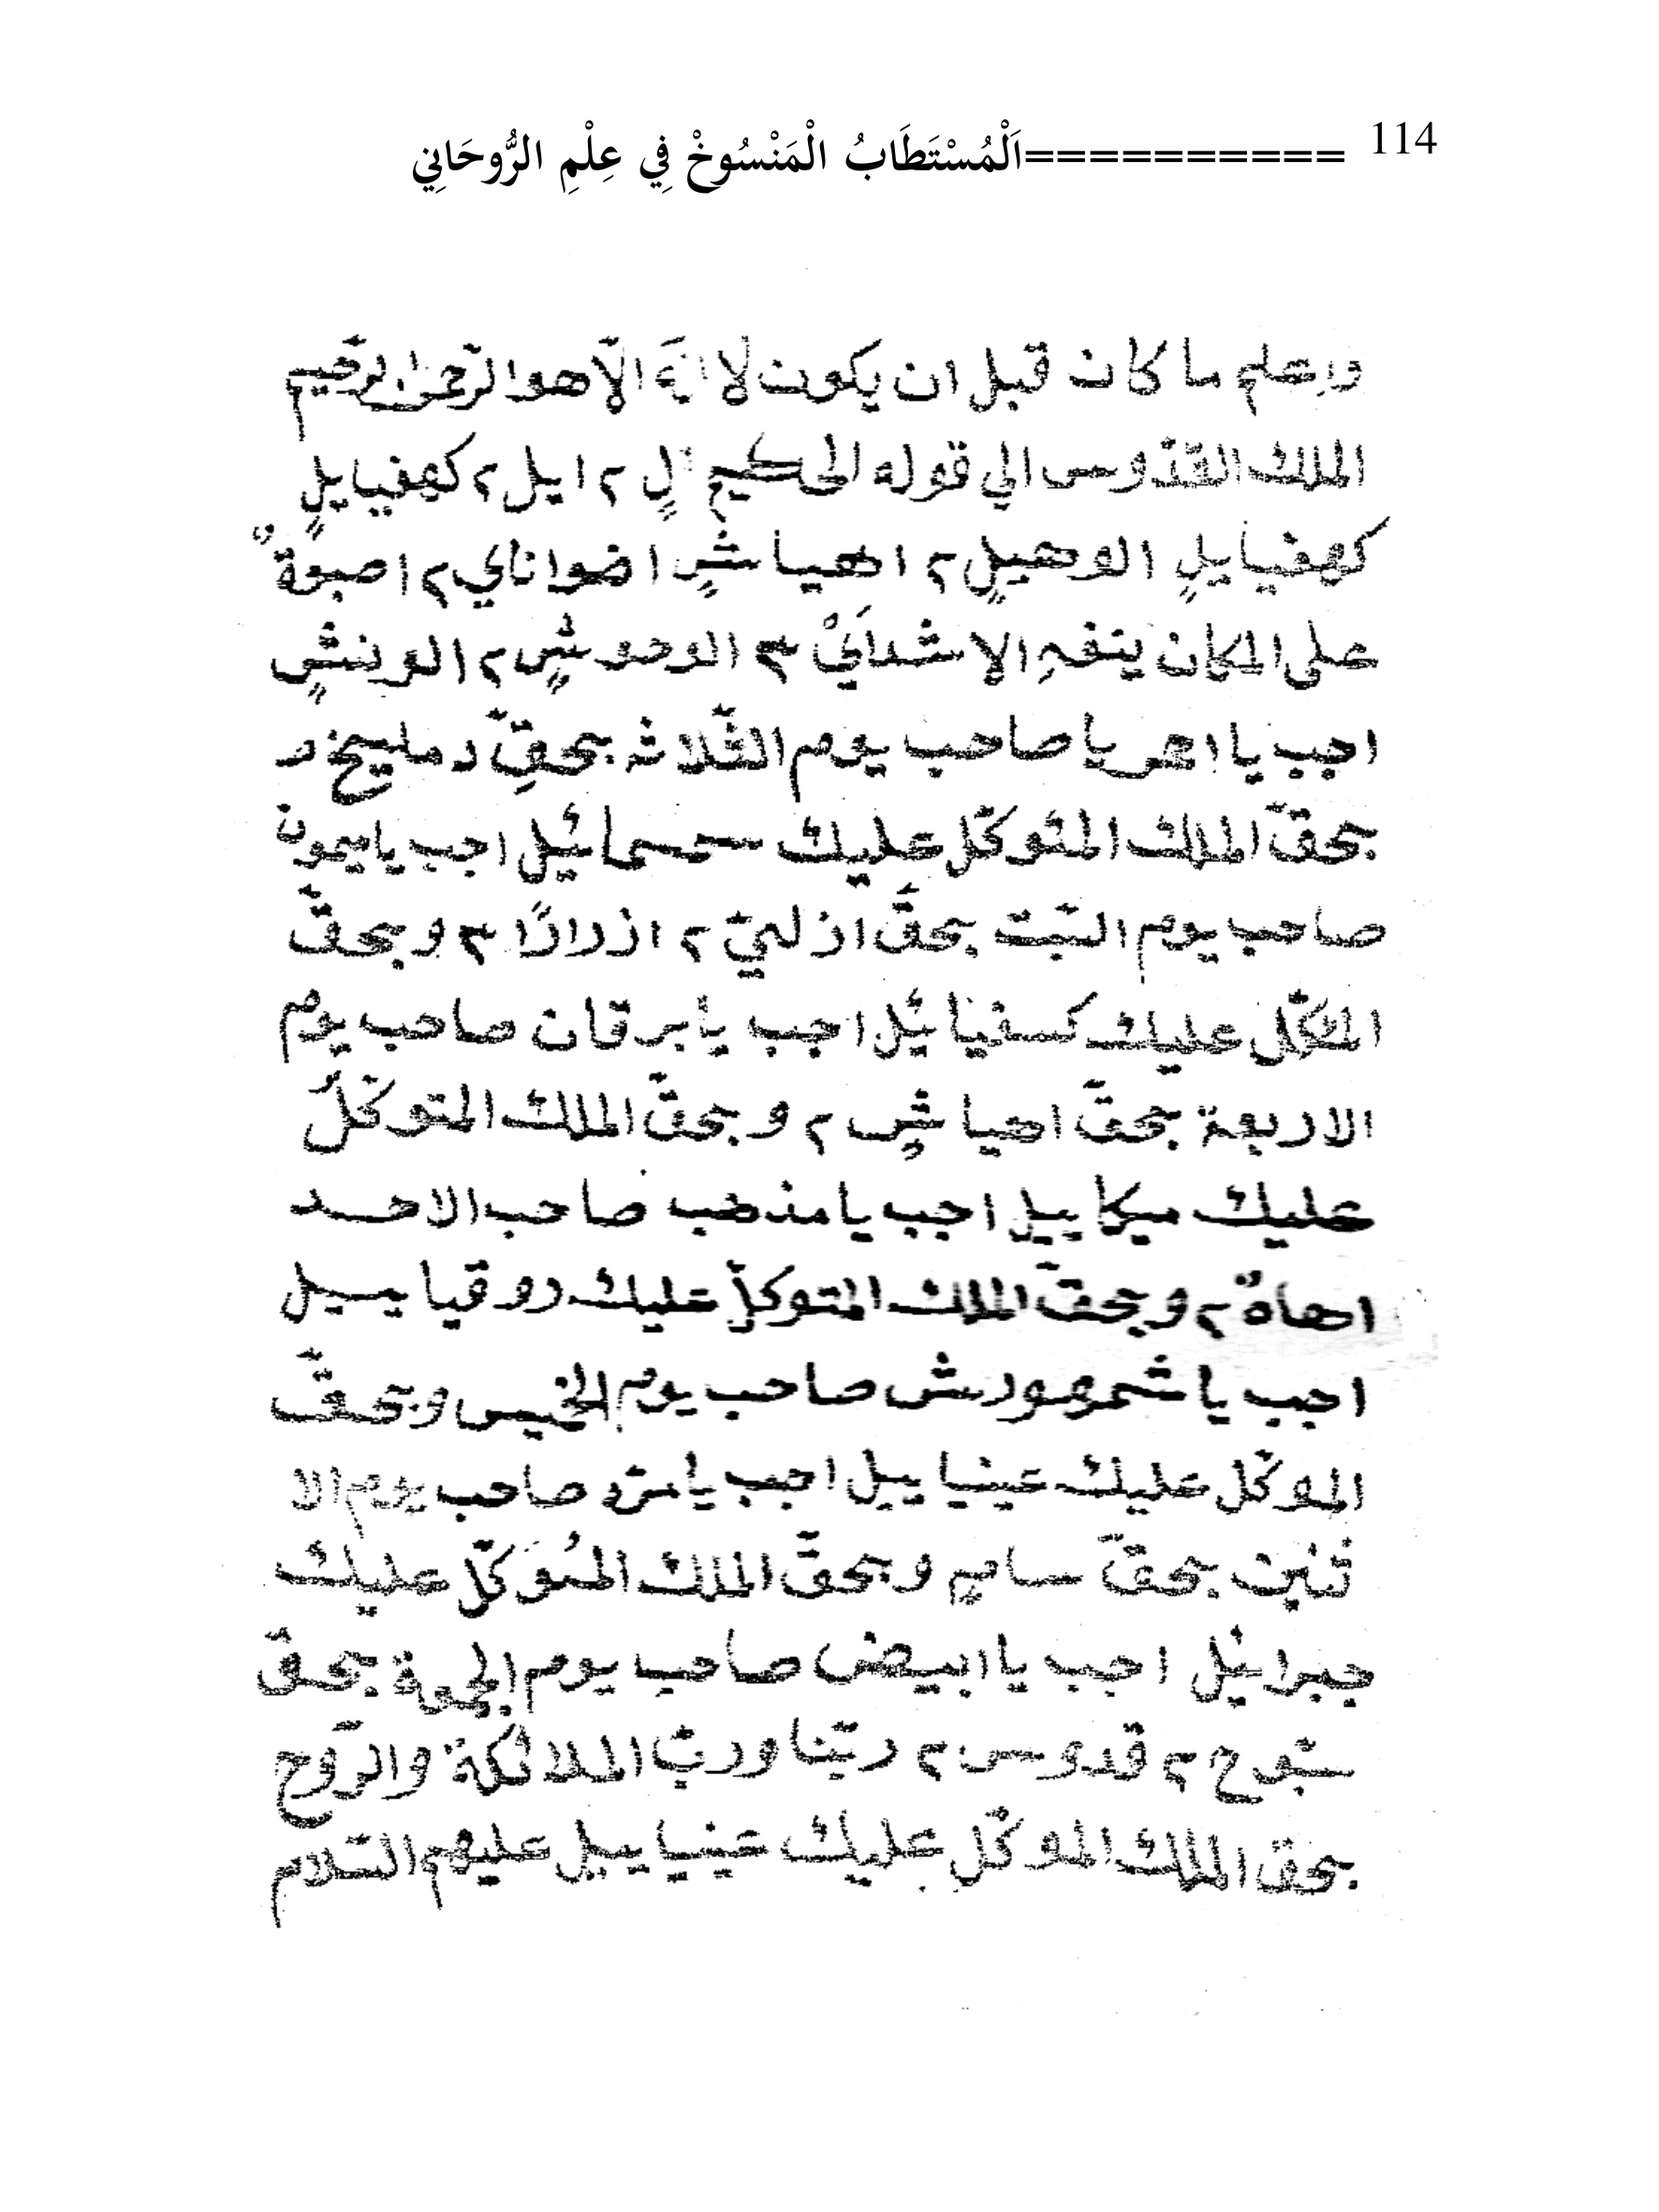 114 ==========اَلْمُسْتَطَابُ الْمَنْسُوخْ فِي عِلْمِ الرُّوحَانِي
وعلم ما كان قبل ان يكون لا اله الّا هوا الرّحمن الرّحيم
الملك القدّوس الي قوله الحكيم الٍ ٢ ايل ٢ كهفيايلٍ
كهفيايلٍ الوهيلٍ ٢ اهيا شٍ اضواناي ٢ اصبعة
على المكان يتفهِ الا شدآيْ ٣ الوحوشٍ ٢ الوينشٍ
اجب يا احمر يا صاحب يوم الثّلاثه بحقِّ دمليخ د
بحقّ الملك المئوكّل عليك سمسمائيل اجب يا ميمون
صاحب يوم السّبت بحقّ ازليّ ٢ ازرازًا ٣ وبحقّ
المئكّل عليك كسفيائيل اجب يا برقان صاحب يوم
الاربعة بحقّ اهيا شٍ ٢ وبحقّ الملك المتوكّلُ
عليك ميكاييل اجب يا مذهب صاحب الاحد
اهاهٌ ٢ وبحقّ الملك المتوكلّ عليك روقياييل
اجب يا شمهورش صاحب يوم الخميس وبحقّ
الموكّل عليك عينياييل اجب يا مرّه صاحب يوم الا
ثنين بحقّ سامٍ وبحقّ الملك المئوَكّل عليك
جبرائيل اجب يا ابيض صاحب يوم الجمعة بحقّ
سبّوح ٢ قدوس ٢ ربّنا وربّ الملائكة والرّوح
بحق الملك الموكّل عليك عينياييل عليهم السّلام